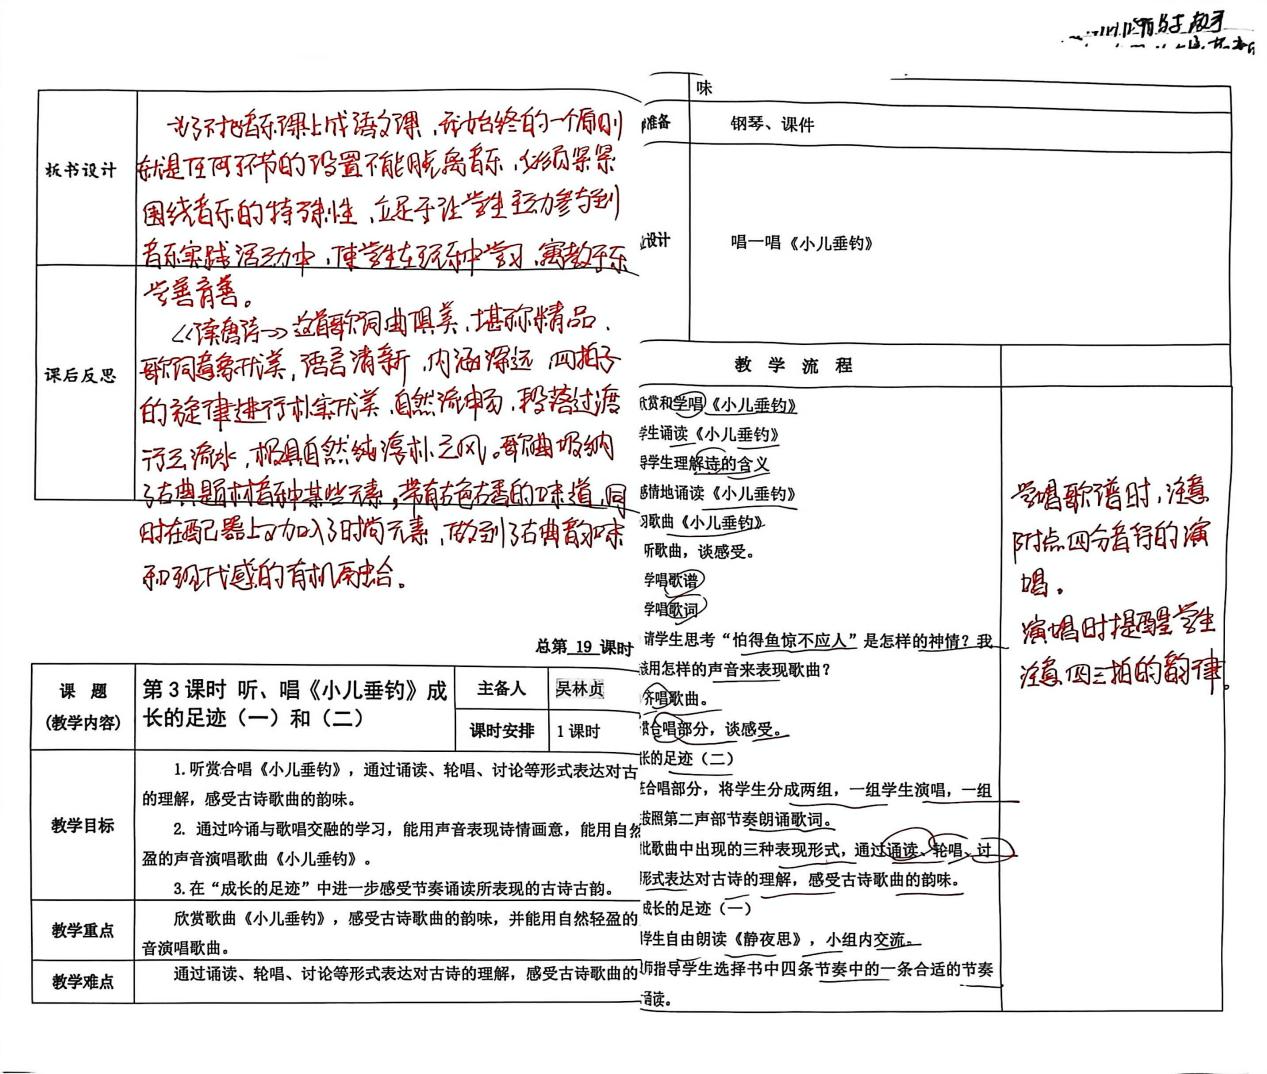 板书设计
为了不把音乐课上成语文课，我始终的一个原则
就是任何环节的设置不能脱离音乐，必须紧紧
围绕音乐的特殊性，立足于让学生主动参与到
音乐实践活动中，使学生在玩乐中学习，寓教于乐
学善育善。
课后反思
《读唐诗》这首歌词曲俱美，堪称精品，
歌词意象优美，语言清新，内涵深远 四拍子
的旋律进行朴实优美，自然流畅，段落过渡
行云流水，极具自然纯净朴之风。歌曲吸纳
了古典题材音乐中某些元素，带有古色古香的味道，同
时在配器上又加入了时尚元素，做到了古典韵味
和现代感的有机融合。
总第 19 课时
课 题
(教学内容)
第 3 课时 听、唱《小儿垂钓》成
长的足迹（一）和（二）
主备人
吴林贞
课时安排
1 课时
教学目标
1. 听赏合唱《小儿垂钓》，通过诵读、轮唱、讨论等形式表达对古
的理解，感受古诗歌曲的韵味。
2. 通过吟诵与歌唱交融的学习，能用声音表现诗情画意，能用自然
盈的声音演唱歌曲《小儿垂钓》。
3. 在“成长的足迹”中进一步感受节奏诵读所表现的古诗古韵。
教学重点
欣赏歌曲《小儿垂钓》，感受古诗歌曲的韵味，并能用自然轻盈的
音演唱歌曲。
教学难点
通过诵读、轮唱、讨论等形式表达对古诗的理解，感受古诗歌曲的
味
准备
钢琴、课件
设计
唱一唱《小儿垂钓》
教 学 流 程
欣赏和学唱《小儿垂钓》
学生诵读《小儿垂钓》
导学生理解诗的含义
感情地诵读《小儿垂钓》
习歌曲《小儿垂钓》
听歌曲，谈感受。
学唱歌谱
学唱歌词
请学生思考“怕得鱼惊不应人”是怎样的神情？我
该用怎样的声音来表现歌曲？
齐唱歌曲。
赏合唱部分，谈感受。
长的足迹（二）
在合唱部分，将学生分成两组，一组学生演唱，一组
按照第二声部节奏朗诵歌词。
此歌曲中出现的三种表现形式，通过诵读、轮唱、讨
形式表达对古诗的理解，感受古诗歌曲的韵味。
成长的足迹（一）
学生自由朗读《静夜思》，小组内交流。
师指导学生选择书中四条节奏中的一条合适的节奏
诵读。
学唱歌谱时，注意
附点四分音符的演
唱。
演唱时提醒学生
注意四三拍的韵律。